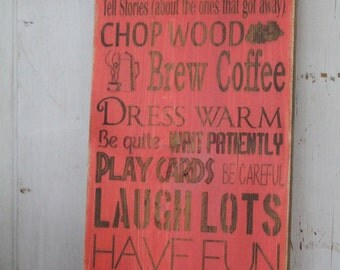 Tell Stories (about the ones that got away)
CHOP WOOD
Brew Coffee
DRESS WARM
Be quite WAIT PATIENTLY
PLAY CARDS BE CAREFUL
LAUGH LOTS
HAVE FUN